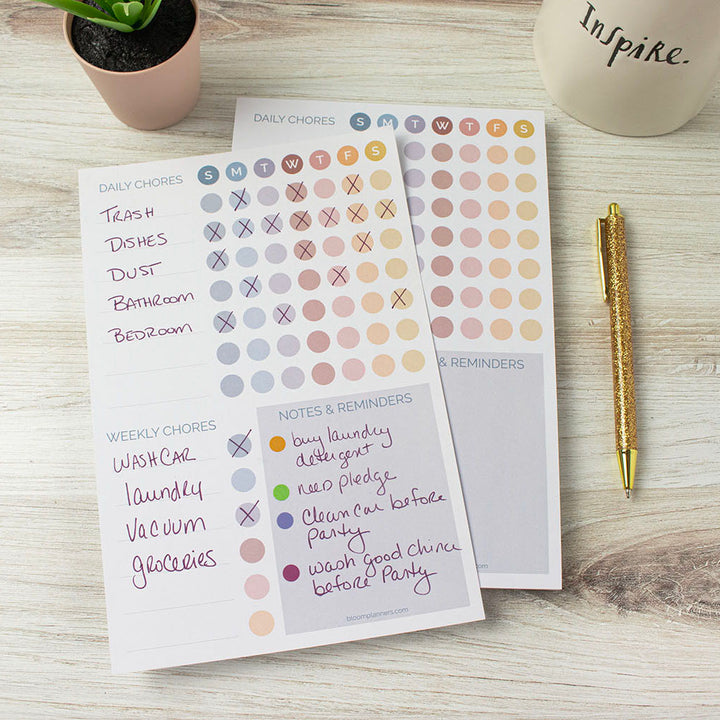 Inspire.
DAILY CHORES S M T W T F S
DAILY CHORES S M T W T F S
TRASH
DISHES
DUST
BATHROOM
BEDROOM
WEEKLY CHORES
WASH CAR
laundry
VACUUM
groceries
NOTES & REMINDERS
buy laundry
detergent
need pledge
Clean car before
Party
wash good china
before Party
bloomplanners.com
& REMINDERS